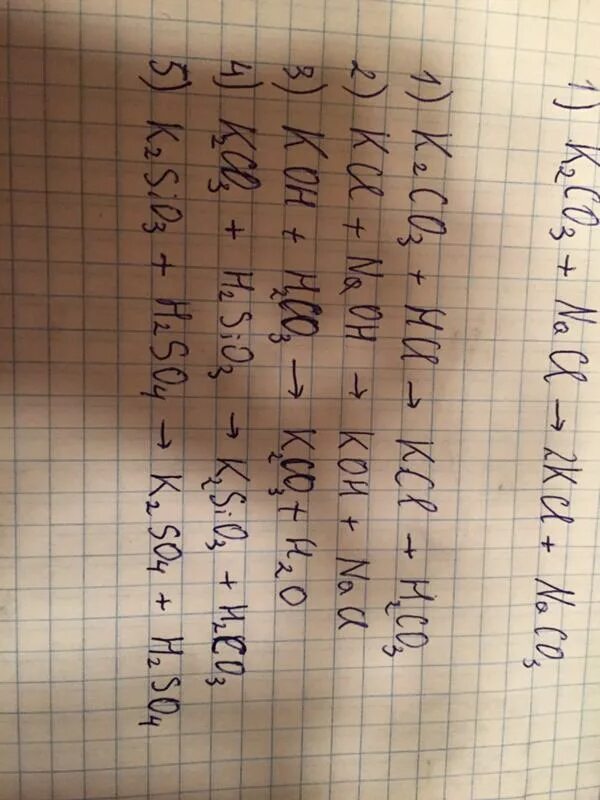 1) K₂CO₃ + NaCl → 2KCl + NaCO₃
1) K₂CO₃ + HCl → KCl + H₂CO₃
2) KCl + NaOH → KOH + NaCl
3) KOH + H₂CO₃ → K₂CO₃ + H₂O
4) K₂CO₃ + H₂SiO₃ → K₂SiO₃ + H₂CO₃
5) K₂SiO₃ + H₂SO₄ → K₂SO₄ + H₂SO₄